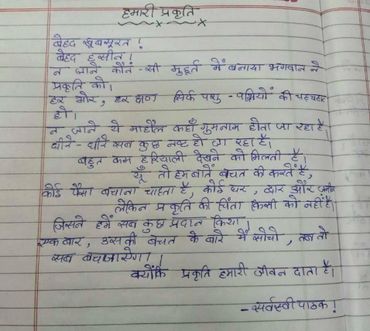 हमारी प्रकृति
बेहद खूबसूरत !
बेहद हसीन !
न जाने कौन - सी मुहूर्त में बनाया भगवान ने
प्रकृति को।
हर ओर, हर क्षण सिर्फ पशु - पक्षियों की चहचहाहट
हो।
न जाने ये माहौल कहाँ गुमनाम होता जा रहा है,
धीरे - धीरे सब कुछ नष्ट हो जा रहा है।
बहुत कम हरियाली देखने को मिलती है।
यूँ तो हम बातें बचत की करते हैं,
कोई पैसा बचाना चाहता है, कोई घर, कार और
लेकिन प्रकृति की चिंता किसी को नहीं है।
जिसने हमें सब कुछ प्रदान किया।
एक बार, उसकी बचत के बारे में सोचो, तब तो
सब बच जाएगा।
क्योंकि प्रकृति हमारी जीवन दाता है।
- सर्वस्वी पाठक !